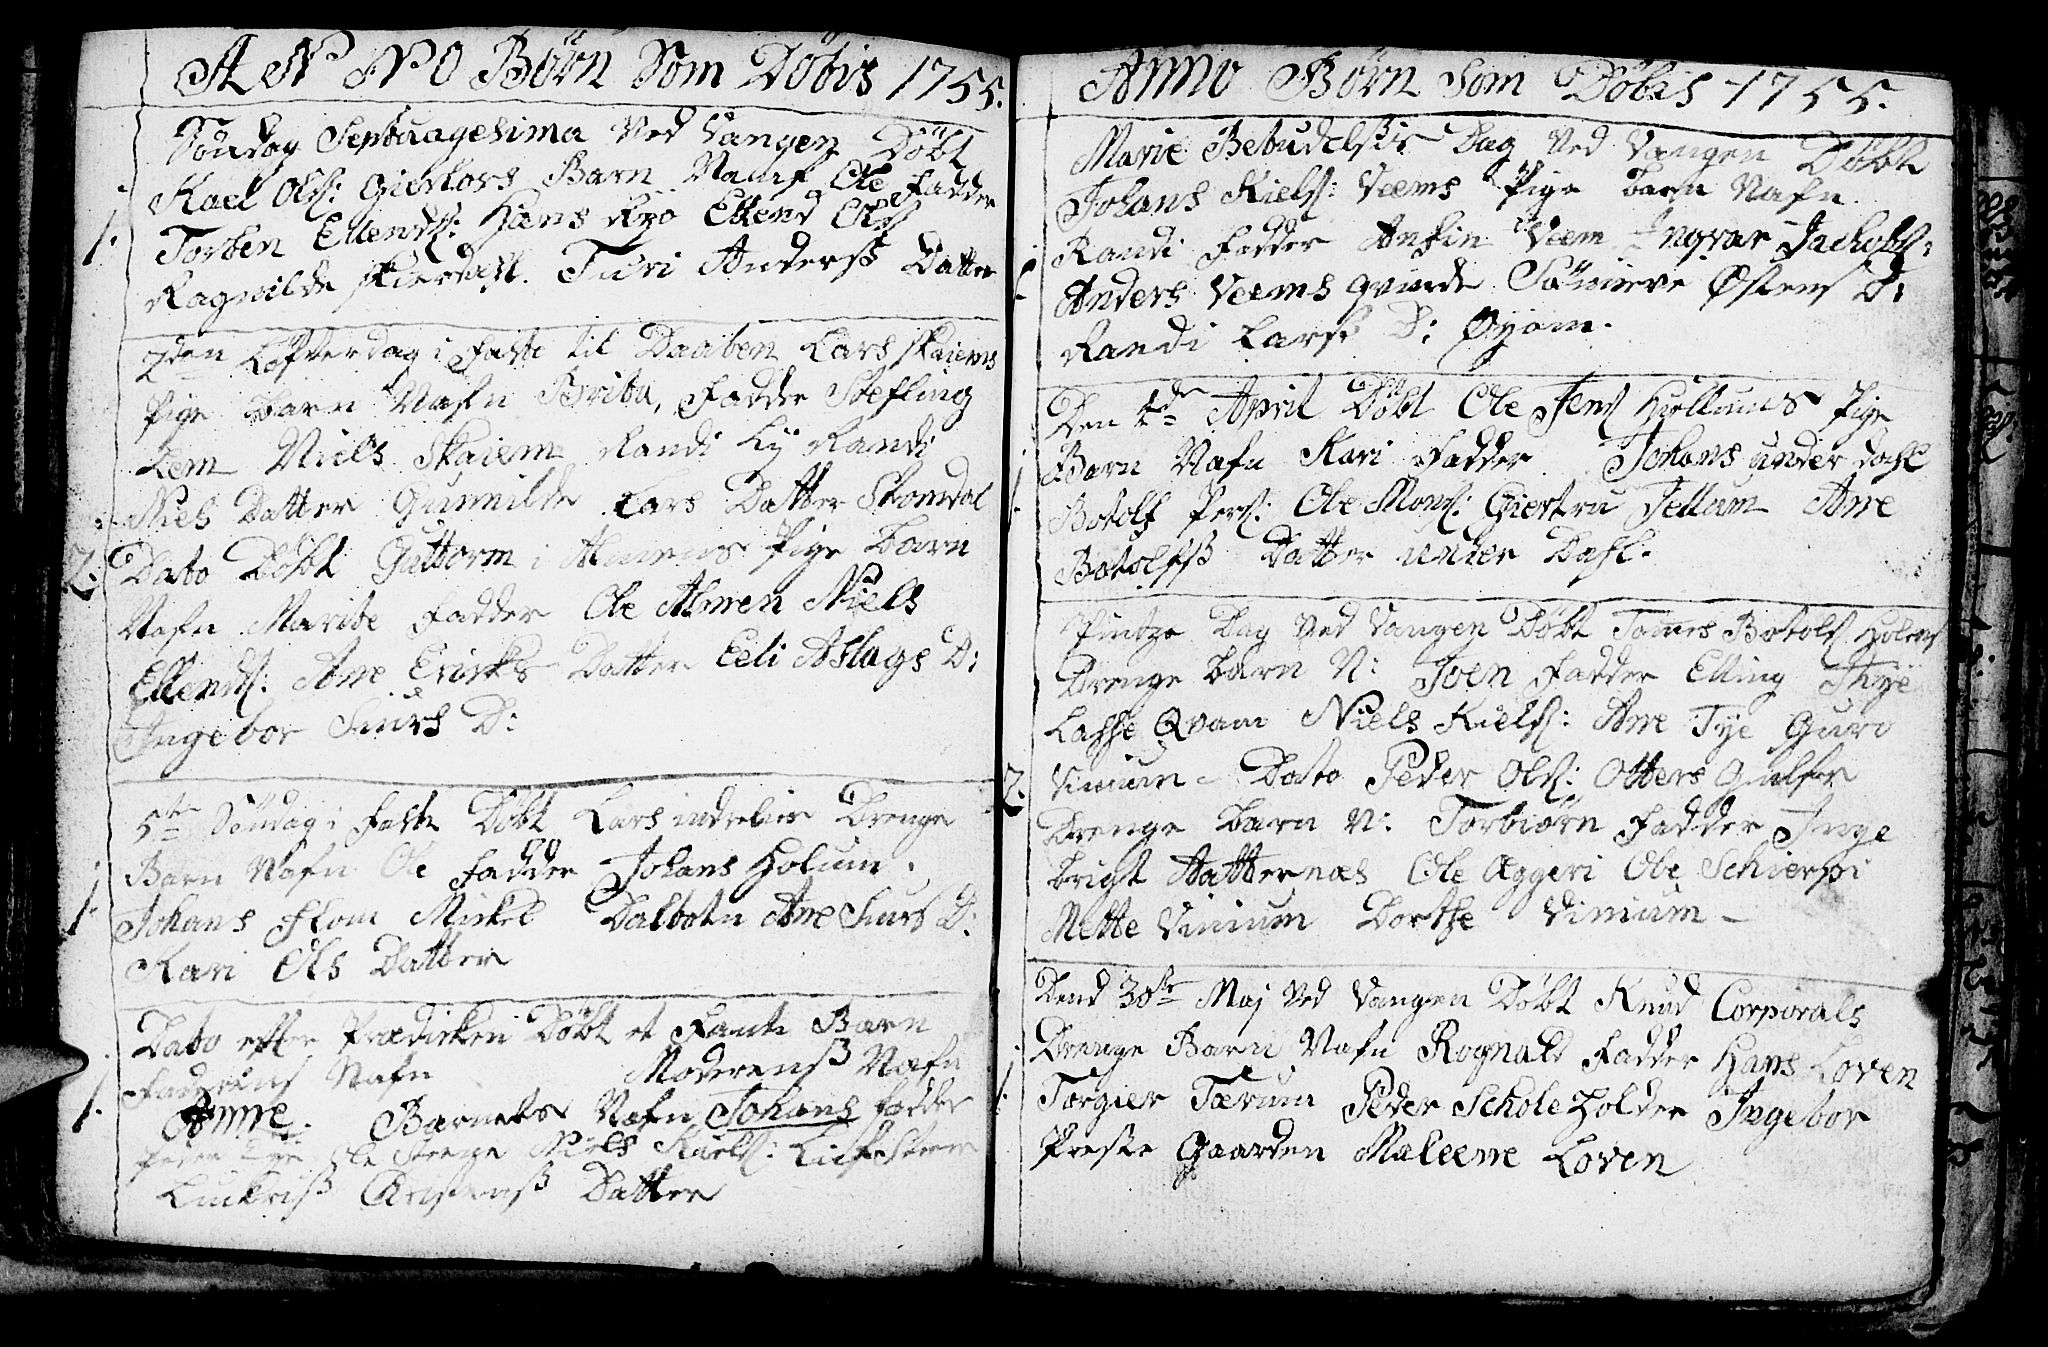 ANNO Børn Som Döbis 1755.
Söndag Septuagesima Ved Vangen Döbt
Kael Ols: Gierkors Barn Namf Ole Fadder
1.
Torsten Ellends: Hans Ryo Ellend Ols
Ragnilde Skierdahl. Turi Anderss Datter
2den Löfverdag i Faste til Daaben Lars Skaiems
Pige Barn Nafn Britta, Fadder Stefling
Lem Niels Skaiem Randi Ly Randi
Niels Datter Gunnilde Lars Datter Skomdal
2.
Dato Döbt Guttorm i Almens Pige Barn
Nafn Marite Fadder Ole Almen Niels
Ellends: Ane Erichs Datter Eeli Aslags D:
Ingebor Siurs D:
5te Söndag i Faste Döbt Lars indrelies Drenge
Barn Nafn Ole Fadder Johans Holum.
1.
Johans Flom Mickel Dalbotn Ane Siurs D:
Kari Ols Datter
Dato efter Prædicken Döbt et Fante Barn
Faderens Nafn Moderenß Nafn
1.
Anne. Barnets Nafn Johans Fadder
Peder Tye Ole Niels Kiels:
Datter
Anno Børn Som Döbes 1755.
Marie Bebudelsis Dag Ved Vangen Döbt
Johans Kiels: Veems Pige Barn Nafn
Randi Fadder Anfin Veem Ingvar Jachobs:
1
Anders Veems Qvinde Sönneve Østens D:
Randi Larss D: Øyom.
Den April Döbt Ole Jens Hollums Pige
Barn Nafn Kari Fadder Johans under Dahl
1.
Botolf Pers: Ole Mons: Giertru Jellum Ane
Botolfsß Datter under Dahl.
Pintze Dag Ved Vangen Döbt Tomes Botols Holens
Drenge Barn N: Joen Fadder Elling Thye
Lasse Qvam Niels Kiels: Ane Tye Guro
2.
Vinium - Dato Peder Ols: Otters
Drenge Barn N: Torbiörn Fadder Inge
bright Hatternæs Ole Æggeri Ole Schierpi
Mette Vinium Dorthe Vinium -
Dend 30te Maj Ved Vangen Döbt Knud Corporals
Drenge Barn Nafn Rognald Fadder Hans Loven
1.
Torgier Tærum Peder Scholeholder Ingebor
Preste Gaarden Maleene Loven